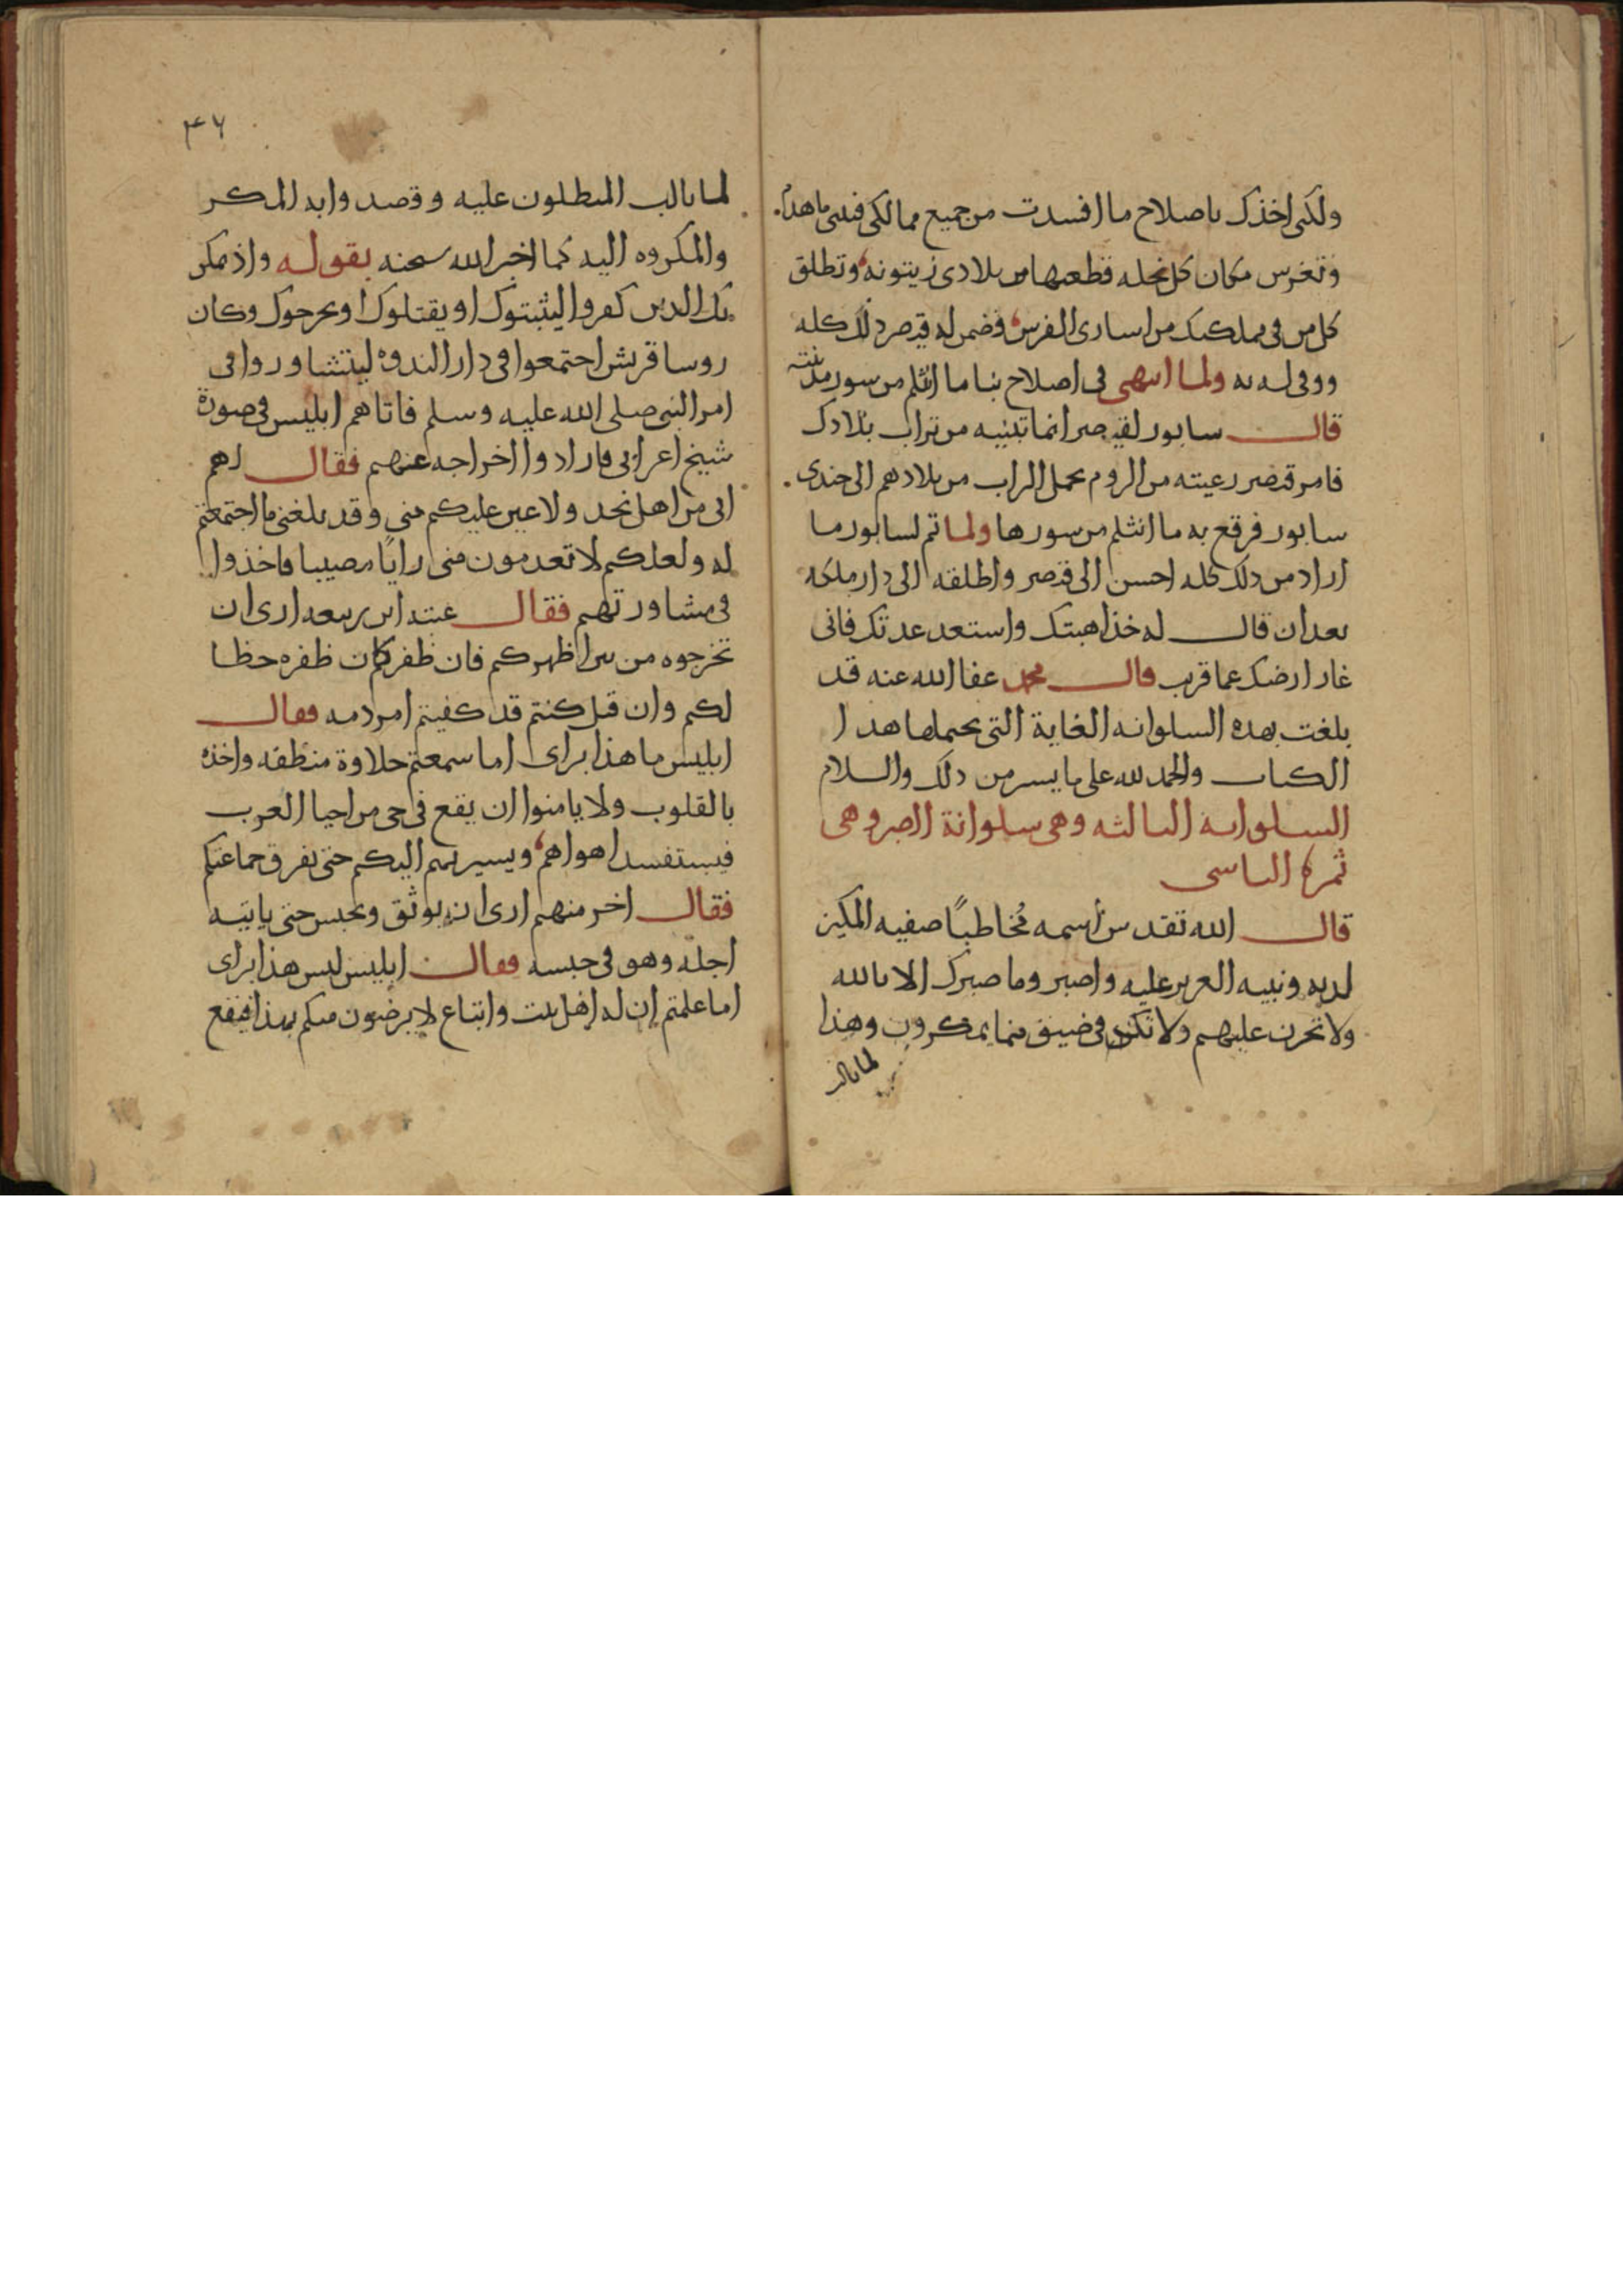 ولكنى اخذك باصلاح ما افسدت من جميع ممالكى فتبنى ما هدمت
وتغرس مكان كل نخله قطعتها من بلادى زيتونه وتطلق
كل من فى مملكتك من اسارى الفرس فضمن له قيصر ذلك كله
ووفى له به ولما انتهى فى اصلاح بنا ما انثلم من سور مدينته
قال سابور لقيصر انما تبنيه من تراب بلادك
فامر قيصر رعيته من الروم بحمل التراب من بلادهم الى جندى
سابور فرقع به ما انثلم من سورها ولما تم لسابور ما
اراد من ذلك كله احسن الى قيصر واطلقه الى دار ملكه
بعد ان قال له خذ اهبتك واستعد عدتك فانى
غاز ارضك عما قريب قال محمد عفا الله عنه قد
بلغت بهذه السلوانه الغاية التى يحتملها هذا
الكتاب والحمد لله على ما يسر من ذلك والسلام
السلوانه الثالثه وهى سلوانة الصبر وهى
ثمرة التاسى
قال الله تقدس اسمه مخاطبًا صفيه المكين
لديه ونبيه العزيز عليه واصبر وما صبرك الا بالله
ولا تحزن عليهم ولا تكن فى ضيق مما يمكرون وهذا
لما تالب
٤٦
لما تالب المبطلون عليه وقصدوا به المكر
والمكروه اليه كما اخبر الله سبحنه بقوله واذ يمكر
بك الذين كفروا ليثبتوك او يقتلوك او يخرجوك وكان
روسا قريش اجتمعوا فى دار الندوه ليتشاوروا فى
امر النبى صلى الله عليه وسلم فاتاهم ابليس فى صورة
شيخ اعرابى فارادوا اخراجه عنهم فقال لهم
انى من اهل نجد ولا عين عليكم منى وقد بلغنى ما اجتمعتم
له ولعلكم لا تعدمون منى رايًا مصيبا فاخذوا
فى مشاورتهم فقال عتبه ابن ربيعه ارى ان
تخرجوه من بين اظهركم فان ظفر كان ظفره حظا
لكم وان قتل كنتم قد كفيتم امر دمه فقال
ابليس ما هذا براى اما سمعتم حلاوة منطقه واخذه
بالقلوب ولا يامنوا ان يقع فى حى من احيا العرب
فيستفسد اهواهم ويسير بهم اليكم حتى يفرق جماعتكم
فقال اخر منهم ارى ان يوثق ويحبس حتى ياتيه
اجله وهو فى حبسه فقال ابليس ليس هذا براى
اما علمتم ان له اهل بيت واتباع لا يرضون منكم بهذا فيقع